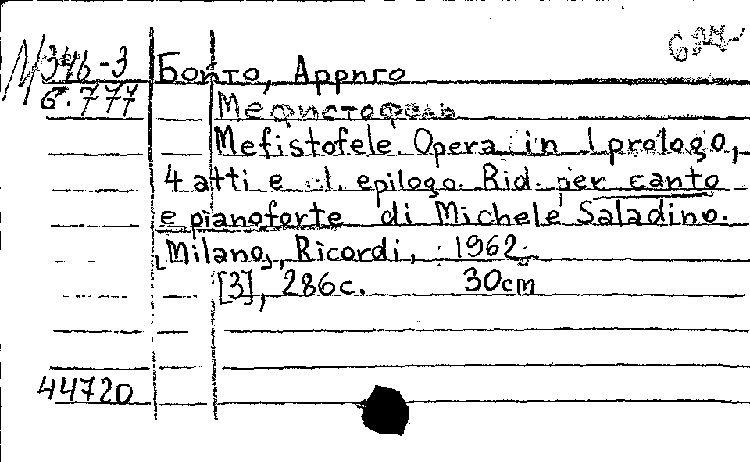 М 346-3 Бойто, Арриго
Б.777 Мефистофель
Mefistofele. Opera in 1 prologo,
4 atti e 1 epilogo. Rid. per canto
e pianoforte di Michele Saladino.
[Milano], Ricordi, 1962.
[3], 286с. 30cm
44720